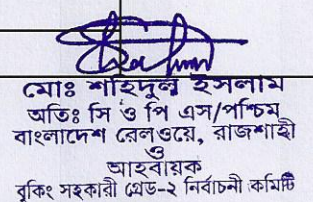 মোঃ শহিদুল ইসলাম
অতিঃ সি ও পি এস/পশ্চিম
বাংলাদেশ রেলওয়ে, রাজশাহী
ও
আহবায়ক
বুকিং সহকারী গ্রেড-২ নির্বাচনী কমিটি